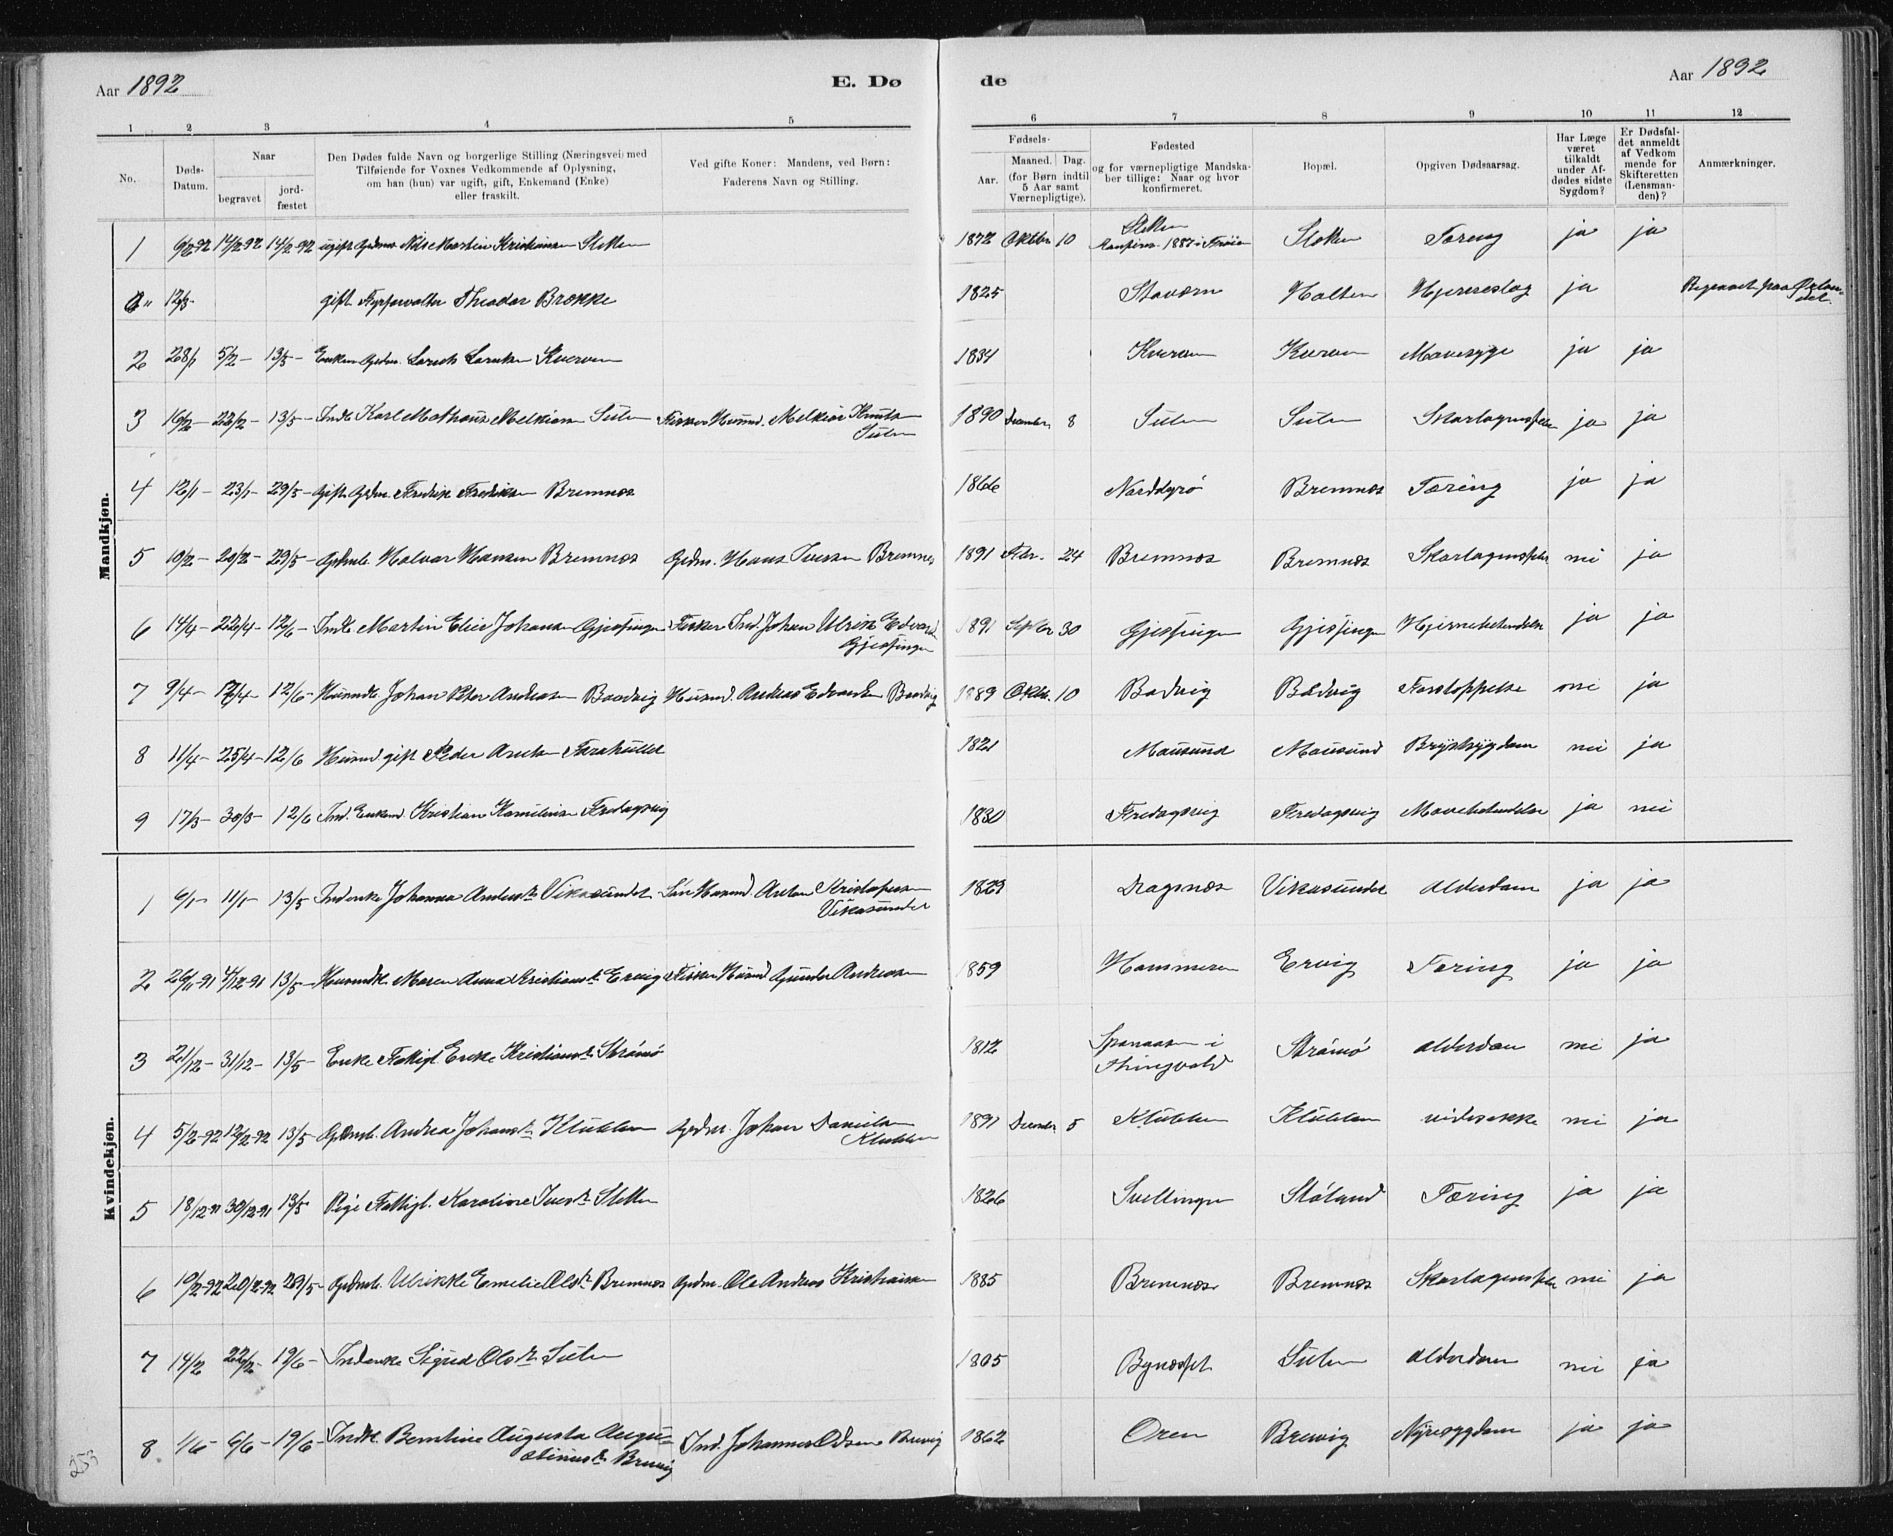 Aar 1892
E. Dø
de
Aar 1892
1 2 3 4 5 6 7 8 9 10 11 12
No.
Døds-
Datum.
Naar
begravet
jord-
fæstet
Den Dødes fulde Navn og borgerlige Stilling (Næringsvei) med
Tilføiende for Voxnes Vedkommende af Oplysning,
om han (hun) var ugift, gift, Enkemand (Enke)
eller fraskilt.
Ved gifte Koner: Mandens, ved Børn:
Faderens Navn og Stilling.
Fødsels-
Aar.
Maaned. Dag.
(for Børn indtil
5 Aar samt
Værnepligtige).
Fødested
og for værnepligtige Mandska-
ber tillige: Naar og hvor
konfirmeret.
Bopæl.
Opgiven Dødsaarsag.
Har Læge
været
tilkaldt
under Af-
dødes sidste
Sygdom?
Er Dødsfal-
det anmeldt
af Vedkom
mende for
Skifteretten
(Lensman-
den)?
Anmærkninger.
Mandkjøn.
1 6/2-92 14/2-92 14/2-92 ugift Nils Martin Kristiansen 1872 Oktbr 10 1887 Tæring ja ja
12/3- gift Fyrforvalter Theodor Brække 1825 Staværn Halten Hjerteslag ja Begravet paa Ørlan-
det.
2 28/1 5/2- 13/5- Kverven 1834 Kverven Kverven Mavesyge ja ja
3 16/2- 22/2- 13/5- Indk Karl Mathæus Melkiorsen Sulen Fisker Husmd. Melkior Knuts
Sulen 1890 December 8 Sulen Sulen Skarlagensfeber ja ja
4 12/1- 23/1- 29/5- Gift Gdm. Fredrik Fredriksen Bremnes 1866 Norddyrø Bremnæs Tæring ja ja
5 10/2- 20/2- 29/5- Halvar Hansen Bremnæs Gdm. Hans Iversen Bremnes 1891 Febr. 24 Bremnæs Bremnæs Skarlagensfeber nei ja
6 14/4- 22/4- 12/6- Indk Martin Elier Johansen Gjessingen Fisker Ind. Johan Ulrik Edvard
Gjessingen 1891 Septbr 30 Gjessingen Gjessingen Hjernebetændelse ja ja
7 9/4- 17/4- 12/6- Johan Peter Andreasen Baadvig Husmd. Andreas Edvardsen Baadvig 1889 Oktbr. 10 Badvig Badvig Forstoppelse nei ja
8 11/4- 25/4- 12/6 Husmd gift Peder 1821 Mausund Mausund Brystsygdom nei ja
9 17/3- 30/3- 12/6 Ind. Enkemd. Kristian Fredagsvig 1830 Fredagsvig Fredagsvig Mavebetændelse ja nei
Kvindekjøn.
1 6/1- 11/1- 13/5- Indenke Johanna Andersdr Vikasundet Husmd. Anton Kristofersen
Vikasundet 1829 Dragsnæs Vikasundet Alderdom ja ja
2 26/11-91 4/12-91 13/5- Maren Anna Kristiansdr Ervig Fisker Husmd Gunder Andreasen 1859 Hammeren Ervig Tæring ja ja
3 21/12- 31/12- 13/5- Enke Fattigl. Kristiansdr Strømø 1812 i
Thingvold Strømø Alderdom nei ja
4 5/2-92 12/2-92 13/5 Andrea Johansdr Klubben Gdm. Johan Danielsen
Klubben 1891 December 5 Klubben Klubben vides ikke nei ja
5 18/12-91 30/12-91 13/5 Pige Fattigl. Karoline Iversdr 1826 Svellingen Støland Tæring ja ja
6 10/2-92 20/2-92 29/5- Ulrikke Emelie Olsdr Bremnæs Gdm. Ole Andreas Kristiansen 1885 Bremnæs Bremnæs Skarlagensfeber nei ja
7 14/2 22/2- 19/6- Indenke Sigrid Olsdr Sulen 1805 Bynæsset Sulen Alderdom nei ja
8 1/6- 6/6- 19/6- Indk. Berntine Augusta Augu-
stinusdr Brevig Ind. Johannes Odsen Brevig 1862 Oren Brevig Nyresygdom ja ja
253